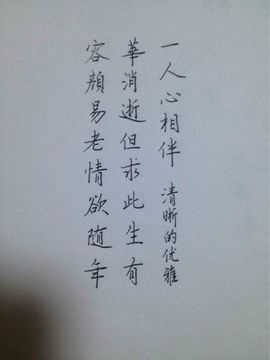 容颜易老情欲随年
華消逝但求此生有
一人心相伴 清晰的优雅